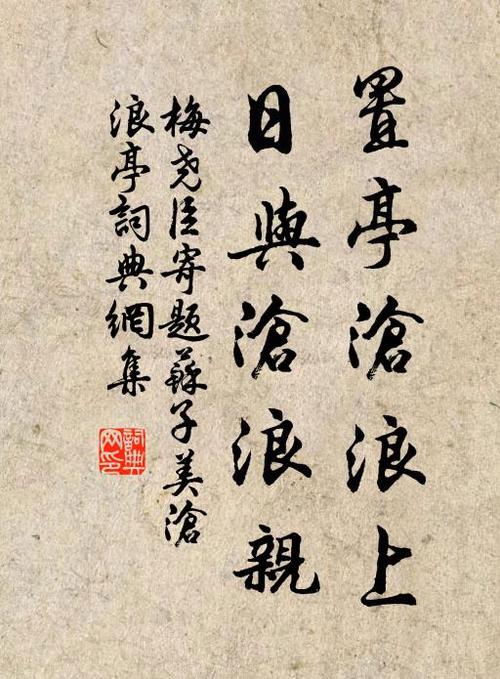 置亭滄浪上
日與滄浪親
梅尧臣寄题蘇子美滄
浪亭詞典網集
詞典
网印